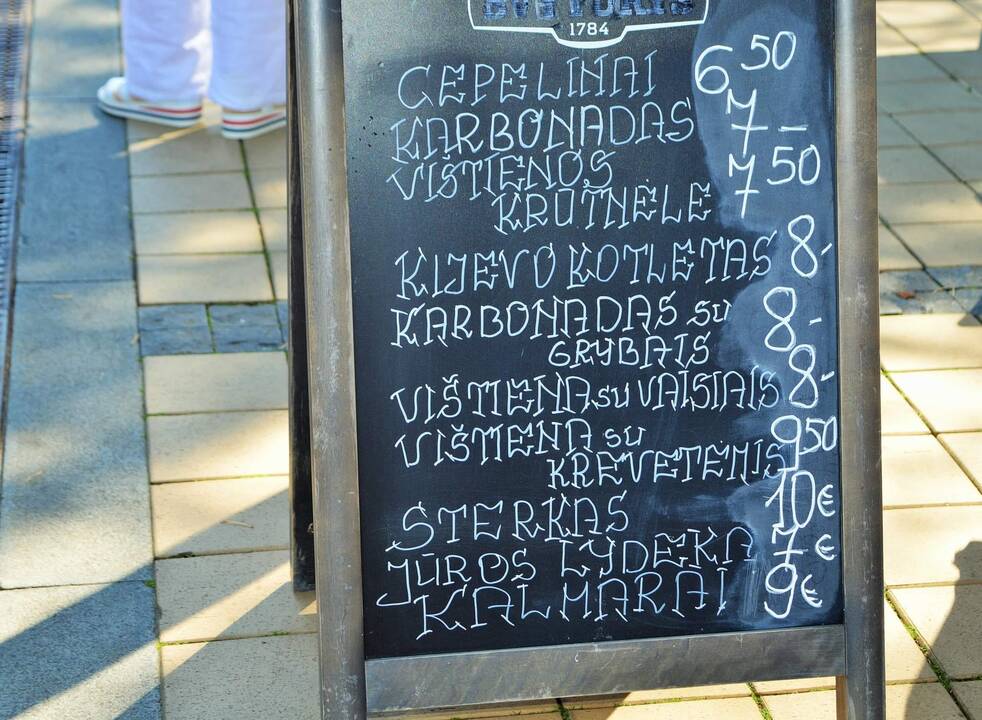 1784
CEPELINAI 6 50
KARBONADAS 7 –
VIŠTIENOS 7 50
KRŪTNĖLĖ
KIJEVO KOTLETAS 8,-
KARBONADAS SU 8,-
GRYBAIS
VIŠTIENA SU VAISIAIS 8,-
VIŠTIENA SU 9 50
KREVETĖMIS
STERKAS 10 €
JŪROS LYDEKA 7 €
KALMARAI 9 €